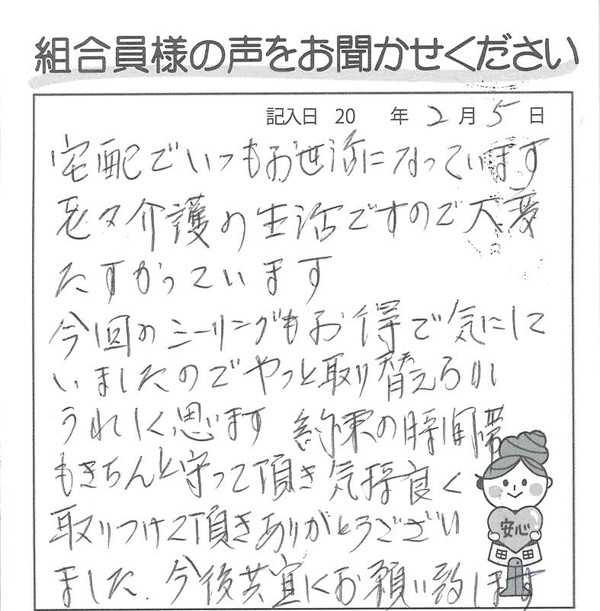 組合員様の声をお聞かせください
記入日 20 年 2 月 5 日
宅配でいつもお世話になっています
老々介護の生活ですので大変
たすかっています
今回のシーリングもお得で気にして
いましたのでやっと取り替えられ
うれしく思います 約束の時間帯
もきちんと守って頂き気持良く
取りつけて頂きありがとうござい
ました、今後共宜くお願い致します
安心